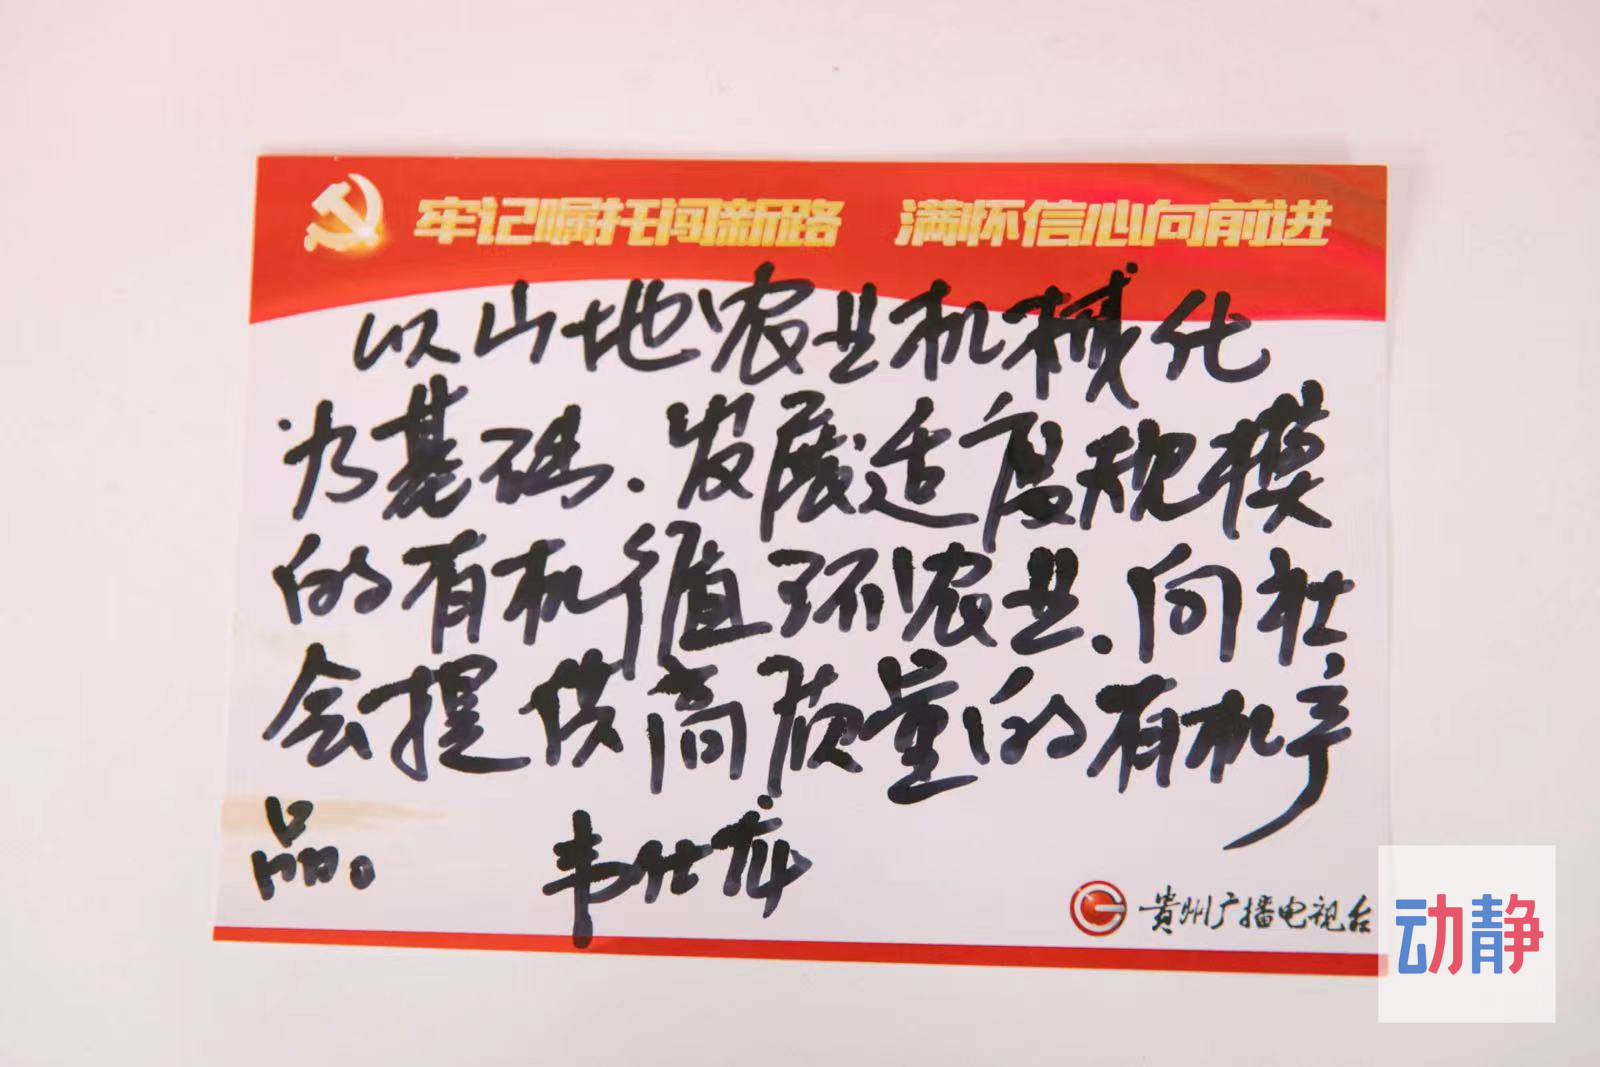 牢记嘱托闯新路 满怀信心向前进
以山地农业机械化
为基础.发展适度规模
的有机循环农业.向社
会提供高质量的有机产
品。 韦仕
贵州广播电视台
动静